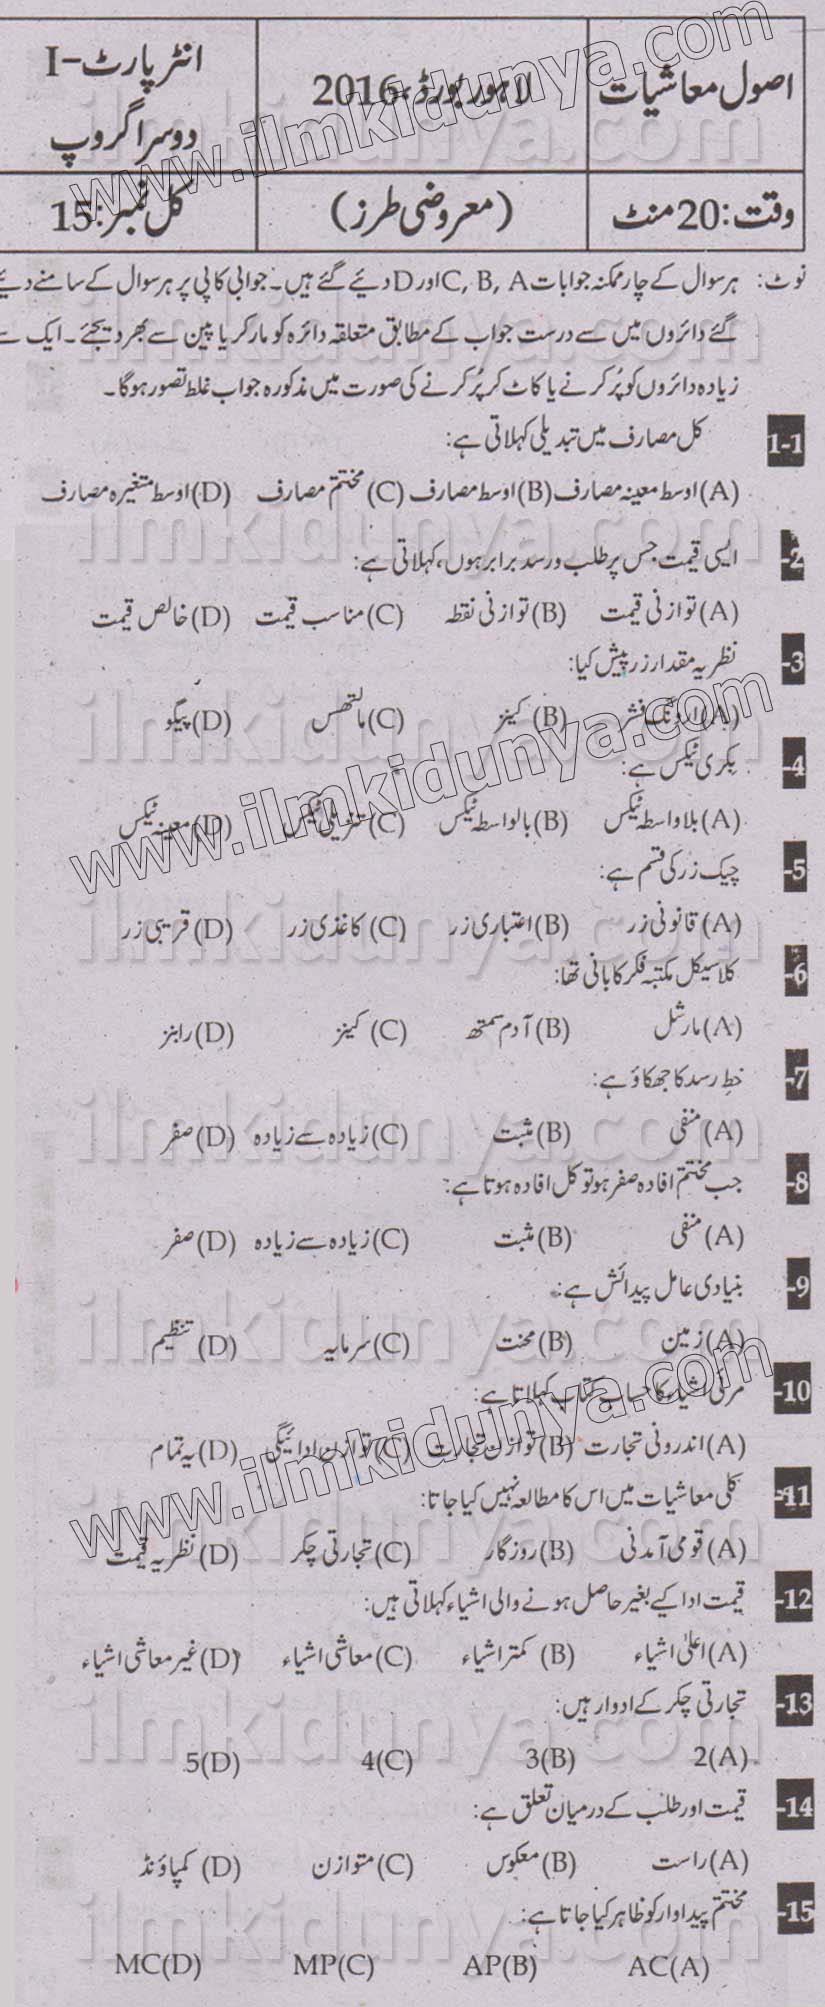 اصول معاشیات لاہور بورڈ، 2016 انٹر پارٹ-I
دوسرا گروپ
وقت: 20 منٹ (معروضی طرز) کل نمبر: 15
نوٹ: ہر سوال کے چار ممکنہ جوابات C, B, A اور D دیئے گئے ہیں۔ جوابی کاپی پر ہر سوال کے سامنے دیئے
گئے دائروں میں سے درست جواب کے مطابق متعلقہ دائرہ کو مارکر یا پین سے بھر دیجئے۔ ایک سے
زیادہ دائروں کو پُر کرنے یا کاٹ کر پُر کرنے کی صورت میں مذکورہ جواب غلط تصور ہوگا۔
1-1 کل مصارف میں تبدیلی کہلاتی ہے:
(A) اوسط معینہ مصارف (B) اوسط مصارف (C) مختتم مصارف (D) اوسط متغیرہ مصارف
2- ایسی قیمت جس پر طلب و رسد برابر ہوں، کہلاتی ہے:
(A) توازنی قیمت (B) توازنی نقطہ (C) مناسب قیمت (D) خالص قیمت
3- نظریہ مقدار زر پیش کیا:
(A) اروِنگ فشر (B) کینز (C) مالتھس (D) پیگو
4- بکری ٹیکس ہے:
(A) بلاواسطہ ٹیکس (B) بالواسطہ ٹیکس (C) تنزیلی ٹیکس (D) معینہ ٹیکس
5- چیک زر کی قسم ہے:
(A) قانونی زر (B) اعتباری زر (C) کاغذی زر (D) قریبی زر
6- کلاسیکل مکتبہ فکر کا بانی تھا:
(A) مارشل (B) آدم سمتھ (C) کینز (D) رابنز
7- خطِ رسد کا جھکاؤ ہے:
(A) منفی (B) مثبت (C) زیادہ سے زیادہ (D) صفر
8- جب مختتم افادہ صفر ہو تو کل افادہ ہوتا ہے:
(A) منفی (B) مثبت (C) زیادہ سے زیادہ (D) صفر
9- بنیادی عامل پیدائش ہے:
(A) زمین (B) محنت (C) سرمایہ (D) تنظیم
10- مرئی اشیاء کا حساب کتاب کہلاتا ہے:
(A) اندرونی تجارت (B) توازن تجارت (C) توازن ادائیگی (D) یہ تمام
11- کلی معاشیات میں اس کا مطالعہ نہیں کیا جاتا:
(A) قومی آمدنی (B) روزگار (C) تجارتی چکر (D) نظریہ قیمت
12- قیمت ادا کیے بغیر حاصل ہونے والی اشیاء کہلاتی ہیں:
(A) اعلیٰ اشیاء (B) کمتر اشیاء (C) معاشی اشیاء (D) غیر معاشی اشیاء
13- تجارتی چکر کے ادوار ہیں:
2(A) 3(B) 4(C) 5(D)
14- قیمت اور طلب کے درمیان تعلق ہے:
(A) راست (B) معکوس (C) متوازن (D) کمپاؤنڈ
15- مختتم پیداوار کو ظاہر کیا جاتا ہے:
AC(A) AP(B) MP(C) MC(D)
www.ilmkidunya.com
ilmkidunya.com